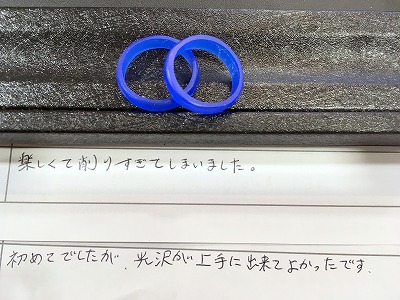 楽しくて削りすぎてしまいました。
初めてでしたが、光沢が上手に出来てよかったです.